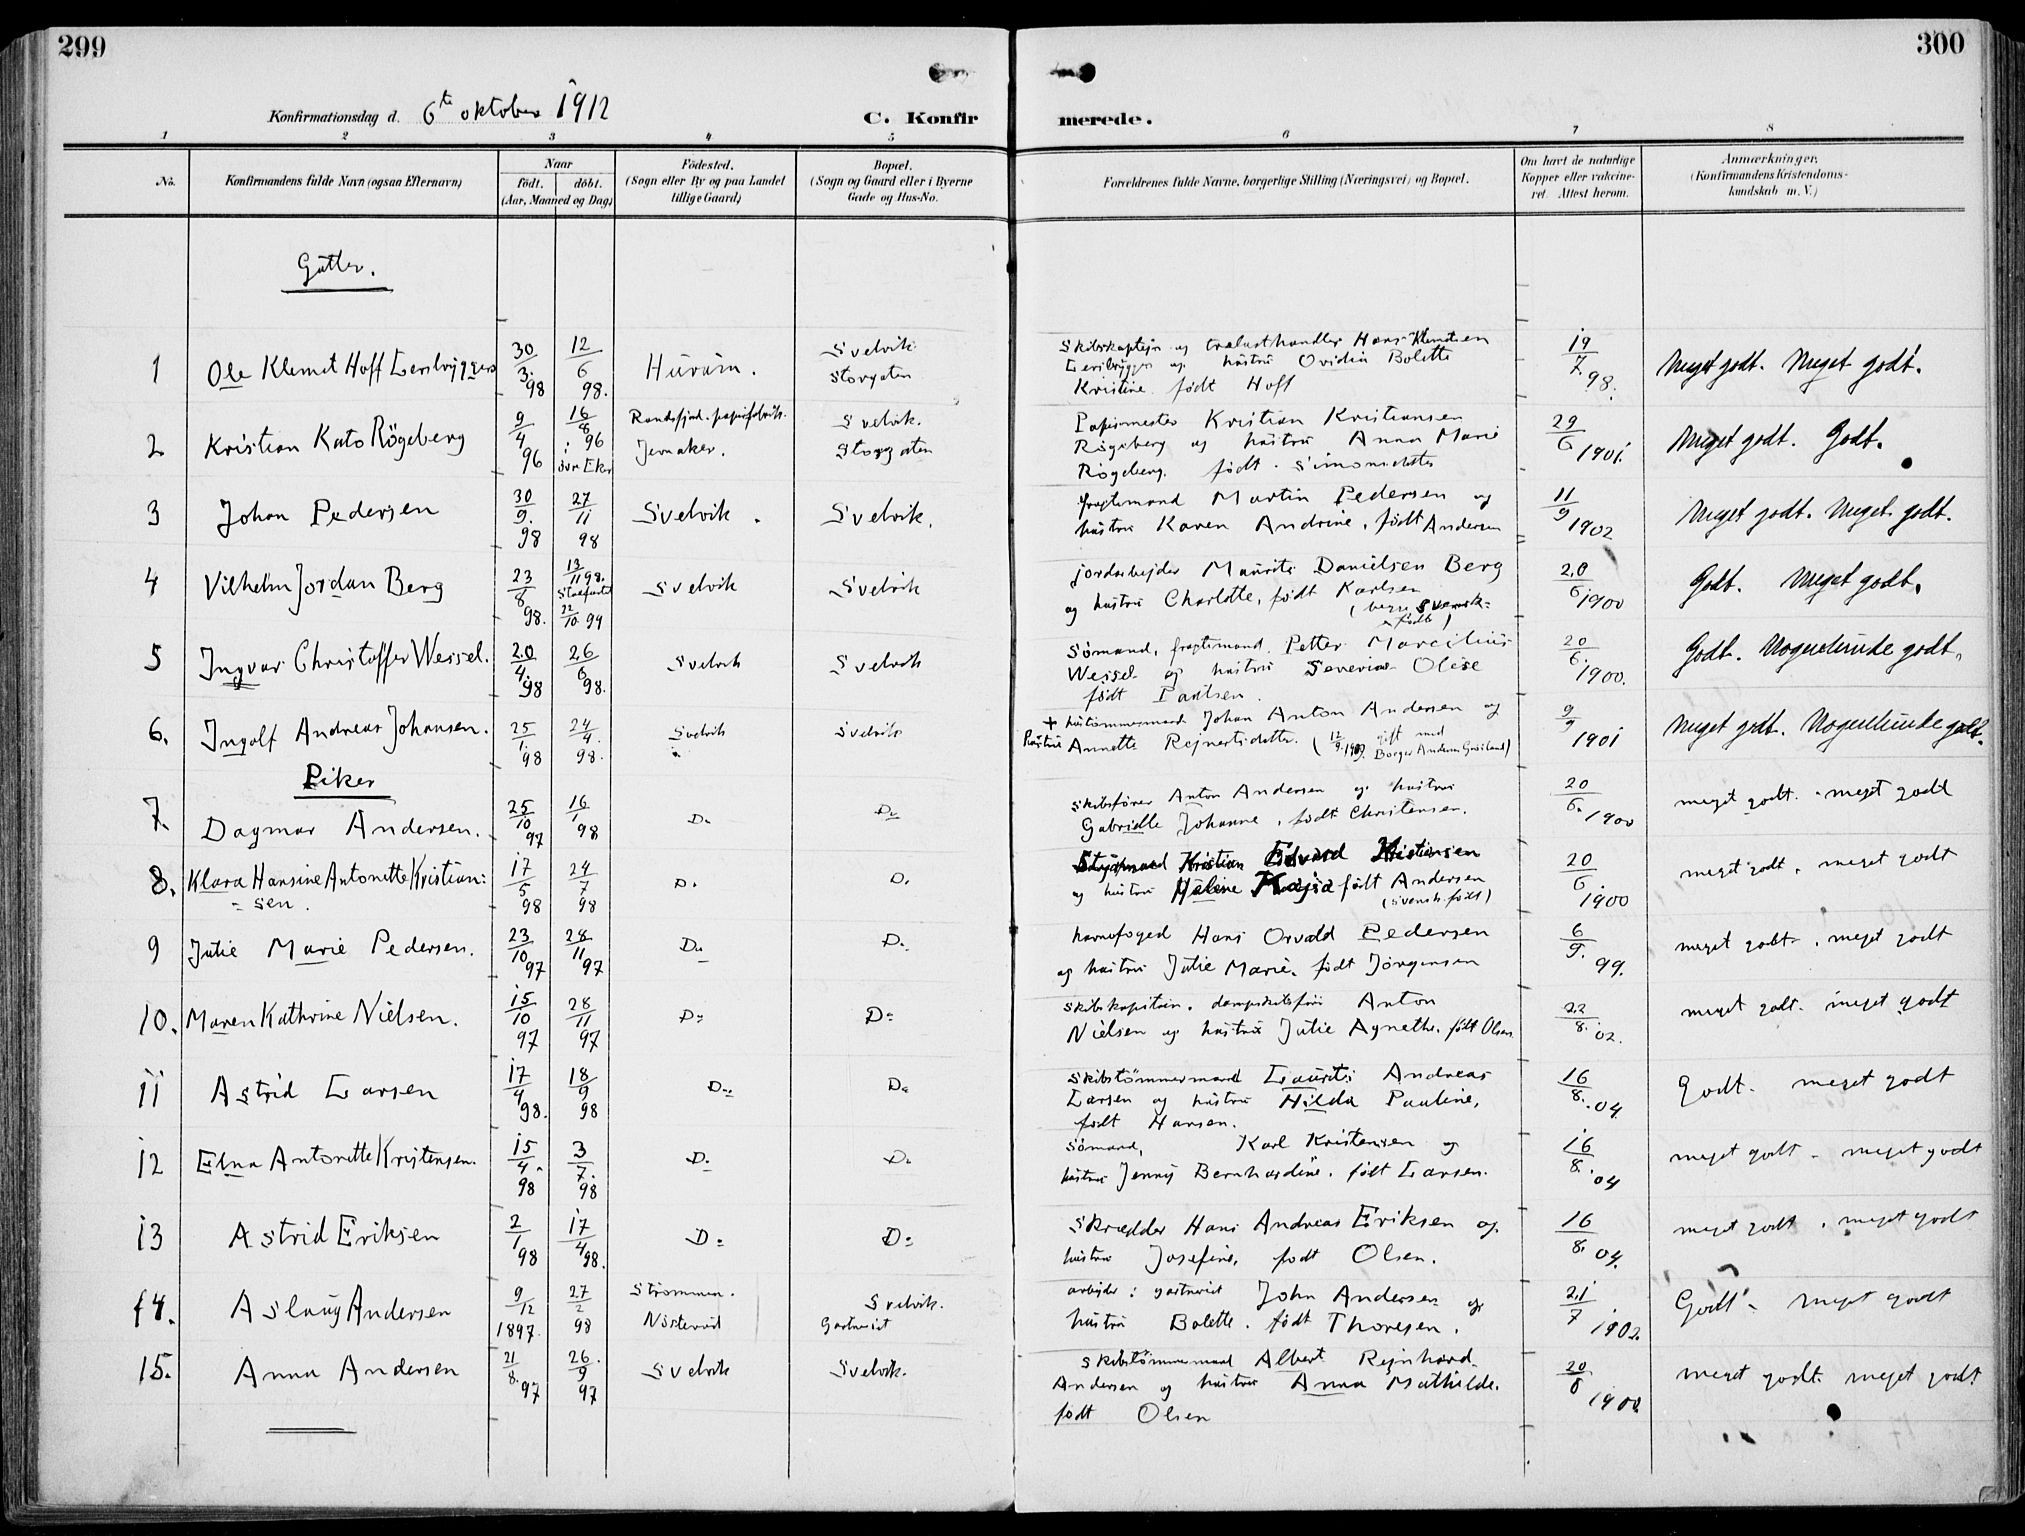 299
300
Konfirmationsdag d. 6te oktober 1912
C. Konfir merede.
1 2 3 4 5 6 7 8
No.
Konfirmandens fulde Navn (ogsaa Efternavn)
Naar
födt. döbt.
(Aar, Maaned og Dag)
Födested.
(Sogn eller By og paa Landet
tillige Gaard)
Bopæl.
(Sogn og Gaard eller i Byerne
Gade og Hus-No.
Forældrenes fulde Navne, borgerlige Stilling (Næringsvei) og Bopæl.
Om havt de naturlige
Kopper eller vakcine-
ret. Attest herom.
Anmærkninger.
(Konfirmandens Kristendoms-
kundskab m. V.)
Gutter.
1 Ole Klemet Hoff Lersbryggen 30/3 98 12/6 98. Hurum. Svelvik Storgaten
Skibskaptejn og trælasthandler Hans Klemetsen
Lersbryggen og hustru Ovidia Bolette
Kristine født Hoff
19/7 98. Meget godt. Meget godt.
2 Kristian Kato Rögeberg 9/4 96 16/8 96 Randsfjord papirfabrik. Jevnaker. Svelvik. Storgaten
Papirmester Kristian Kristiansen
Rögeberg og hustru Anna Marie
Rögeberg. født Simonsdatter
29/6 1901. Meget godt. Godt.
3 Johan Pedersen 30/9. 98 27/11 98 Svelvik. Svelvik.
fragtemand Martin Pedersen og
hustru Karen Andrine, født Andersen
11/9 1902 Meget godt. Meget godt.
4 Vilhelm Jordan Berg 23/8 98. 13/11 98. 22/10 99 Svelvik Svelvik
jordarbejder Maurits Danielsen Berg
og hustru Charlotte, født Karlsen
(begge svensk-
født)
20/6 1900 Godt. Meget godt.
5 Ingvar Christoffer Wessel. 20/4. 98 26/6 98. Svelvik Svelvik
Sømand, fragtemand Petter Marcelius
Wessel og hustru Severine Olise
født Paulsen.
20/6. 1900. Godt. Nogenlunde godt.
6. Ingolf Andreas Johansen. 25/1. 98 24/4. 98. Svelvik Svelvik
+ hustömmermand Johan Anton Andersen og
hustru Annette Rejnertsdatter. (12/9. gift med
Borger Anders)
9/9 1901 Meget godt. Nogenlunde godt.
Piker
7. Dagmar Andersen. 25/10 97 16/1 98 Do Do
Skibsfører Anton Andersen og hustru
Gabrielle Johanne, født Christensen.
20/6. 1900 meget godt. meget godt
8. Klara Hansine Antonette Kristian-
sen. 17/5 98 24/7 98 Do Do
Styrmand Kristian Edvard Kristiansen
og hustru Helene Kajsa født Andersen
(svensk født)
20/6 1900 meget godt. meget godt
9 Julie Marie Pedersen. 23/10 97 28/11 97 Do Do
havnefoged Hans Osvald Pedersen
og hustru Julie Marie, født Jörgensen
6/9. 99. meget godt. meget godt
10. Maren Kathrine Nielsen. 15/10 97 28/11 97 Do Do
skibskaptein, dampskibsfører Anton
Nielsen og hustru Julie Agnethe. født Olsen
22/8. 02. meget godt. meget godt
11 Astrid Larsen 17/4 98. 18/9 98 Do Do
Skibstömmermand Laurits Andreas
Larsen og hustru Hilda Pauline,
født Hansen.
16/8. 04 Godt. meget godt
12 Elna Antonette Kristensen. 15/4. 98 3/7. 98 Do Do
Sömand, Karl Kristensen og
hustru Jenny Bernhardine, født Larsen.
16/8. 04 meget godt - meget godt
13 Astrid Eriksen 2/1 98 17/4 98. Do Do
Skrædder Hans Andreas Eriksen og
hustru Josefine, født Olsen.
16/8. 04. meget godt. meget godt
14. Aslaug Andersen 9/12 1897. 27/2 98 Strømmen. Svelvik. Gartneriet
arbejder i gartneriet John Andersen og
hustru Bolette. født Thoresen.
21/7 1902. Godt. meget godt
15. Anna Andersen 21/8. 97 26/9 97 Svelvik Svelvik.
Skibstömmermand Albert Rejnhard
Andersen og hustru Anna Mathilde.
født Olsen
20/8 meget godt. meget godt